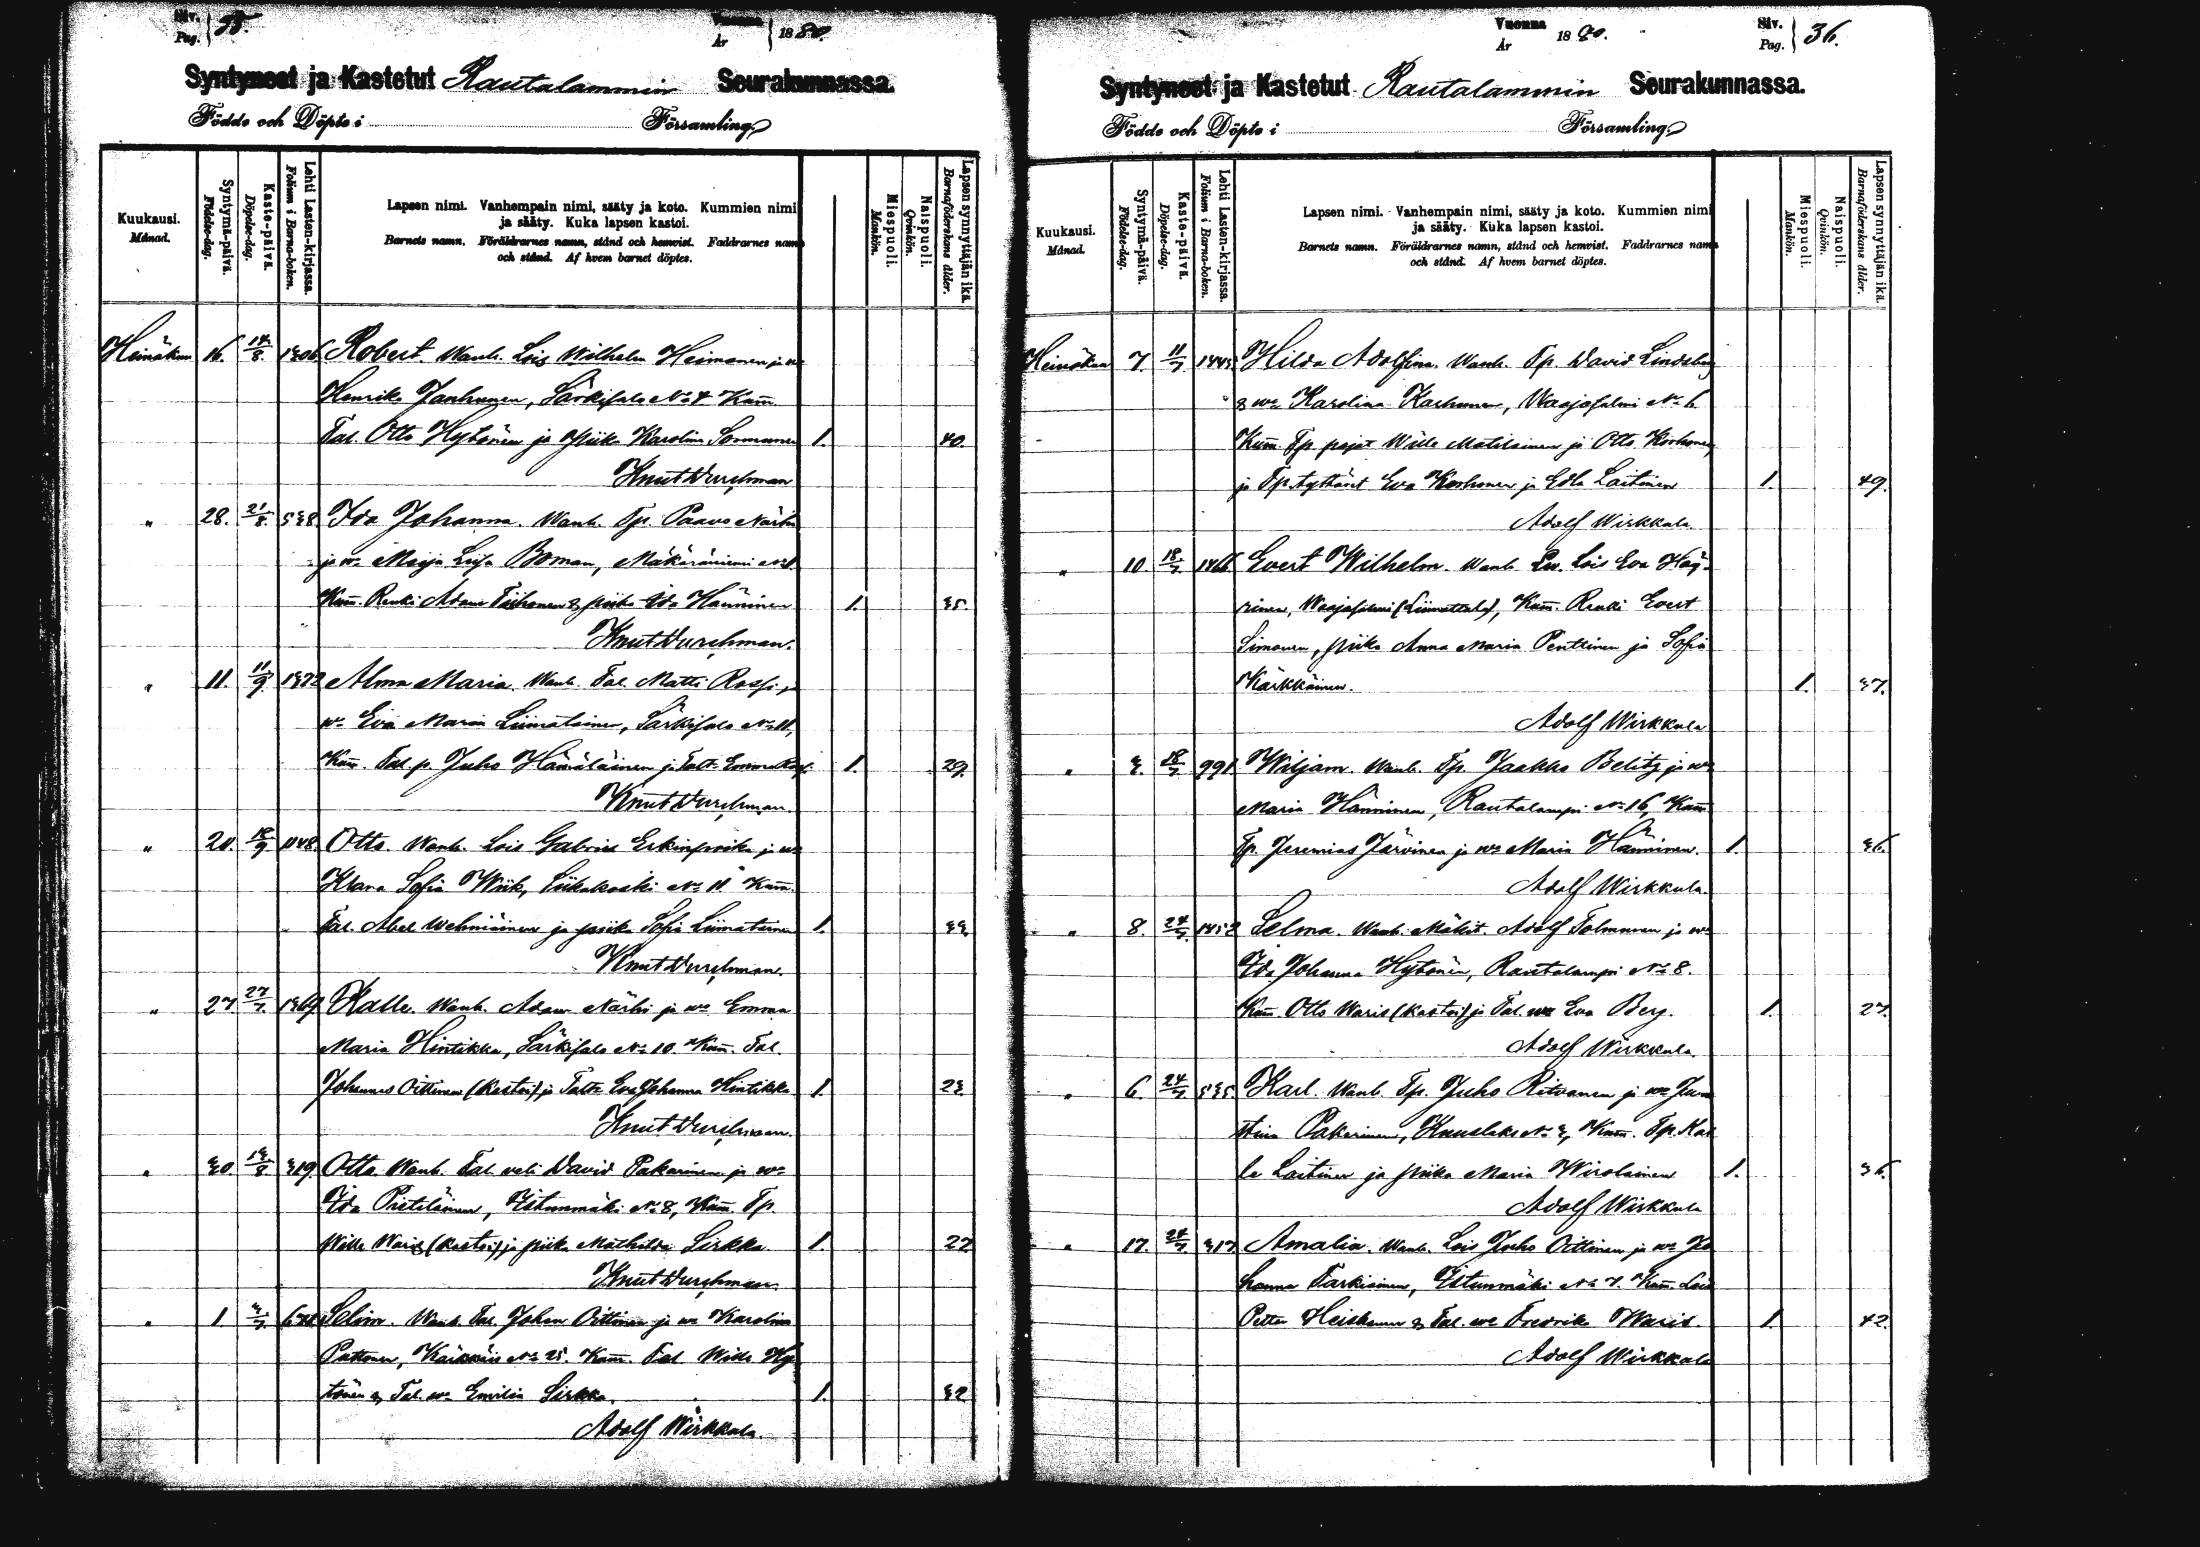 Siv.
Pag. 35.
Vuonna
År 1880.
Syntyneet ja Kastetut Rautalammin Seurakunnassa.
Födde och Döpte i Församling
Kuukausi.
Månad.
Syntymä-päivä.
Födelse-dag.
Kaste-päivä.
Döpelse-dag.
Lehti Lasten-kirjassa.
Folium i Barna-boken.
Lapsen nimi. Vanhempain nimi, sääty ja koto. Kummien nimi
ja sääty. Kuka lapsen kastoi.
Barnets namn. Föräldrarnes namn, stånd och hemvist. Faddrarnes namn
och stånd. Af hvem barnet döptes.
Miespuoli.
Mankön.
Naispuoli.
Qvinkön.
Lapsen synnyttäjän ikä.
Barnaföderskans ålder.
Heinäkuu 16. 14/8. 1306 Robert. Wanh. Lois Wilhelm Heimonen ja wo
Henrika Janhunen, Särkisalo No 4 Kum.
Tal. Otto Hytönen ja piika Karolina Sormunen 1. 40.
Knut Durchman
" 28. 21/8. 538 Ida Johanna. Wanh. Tp. Paavo Närhi
ja wo Maija Liisa Boman, Mäkäräniemi No 1
Kum. Renki Adam Tiihonen & piika Ida Hänninen 1. 35.
Knut Durchman.
" 11. 11/9 1372 Alma Maria. Wanh. Tal. Matti Rossi ja
wo Eva Maria Liimatainen, Särkisalo No 11,
Kum. Tal. p. Juho Hämäläinen ja Taltr. Emma Rossi. 1. 29.
Knut Durchman.
" 20. 18/9 1148. Otto. Wanh. Lois Gabriel Erkinpoika ja wo
Klara Sofia Wiik, Siikakoski No 11 Kum.
Tal. Abel Wehniäinen ja piika Sofia Liimatainen 1. 33.
Knut Durchman.
" 27. 27/7. 1369 Kalle. Wanh. Adam Närhi ja wo Emma
Maria Hintikka, Särkisalo No 10. Kum. Tal.
Johannes Oittinen (kastoi) ja Taltr. Eva Johanna Hintikka 1. 23.
Knut Durchman.
" 30. 13/8. 319. Otto. Wanh. Tal. veli David Pakarinen ja wo
Ida Pieteläinen, Istunmäki No 8, Kum. Tp.
Wille Waris (kastoi) ja piika Mathilda Sirkka. 1. 27
Knut Durchman.
" 1. Selim. Wanh. Tal. Johan Oittinen ja wo Karolina
Puttonen, Kärkkäis No 25. Kum. Tal. Wille Hy
tönen & Tal. wo Emilia Sirkka. 1. 32
Adolf Wirkkala.
Vuonna
År 1880.
Siv.
Pag. 36.
Syntyneet ja Kastetut Rautalammin Seurakunnassa.
Födde och Döpte i Församling
Kuukausi.
Månad.
Syntymä-päivä.
Födelse-dag.
Kaste-päivä.
Döpelse-dag.
Lehti Lasten-kirjassa.
Folium i Barna-boken.
Lapsen nimi. Vanhempain nimi, sääty ja koto. Kummien nimi
ja sääty. Kuka lapsen kastoi.
Barnets namn. Föräldrarnes namn, stånd och hemvist. Faddrarnes namn
och stånd. Af hvem barnet döptes.
Miespuoli.
Mankön.
Naispuoli.
Qvinkön.
Lapsen synnyttäjän ikä.
Barnaföderskans ålder.
Heinäkuu 7. 11/7. 1445 Hilda Adolfina. Wanh. Tp. David Lindsberg
& wo Karolina Karhunen, Waajasalmi No 6.
Kum. Tp. pojat Wille Matilainen ja Otto Korhonen,
ja Tp. tyttäret Eva Korhonen ja Edla Laitinen 1. 49.
Adolf Wirkkala.
" 10. 18/7. 1466 Evert Wilhelm. Wanh. Lois Eva Hay-
rinen, Waajasalmi (Liimattala), Kum. Renki Evert
Simonen, piika Anna Maria Penttinen ja Sofia
Kärkkäinen. 1. 37.
Adolf Wirkkala
" 3. 18/7. 991. Wiljam. Wanh. Tp. Jaakko Belitz ja wo
Maria Hänninen, Rautalampi No 16, Kum
Tp. Jeremias Järvinen ja wo Maria Hänninen. 1. 36.
Adolf Wirkkala.
" 8. 24/7. 1452 Selma. Wanh. Mäkit. Adolf Tolmunen ja wo
Ida Johanna Hytönen, Rautalampi No 8.
Kum. Otto Waris (kastoi) ja Tal. wo Eva Berg. 1. 27.
Adolf Wirkkala.
" 6. 24/7. 535. Karl. Wanh. Tp. Juho Ritvanen ja wo
stina Pakarinen, Kuuslaks No 3, Kum. Tp. Kal
le Laitinen ja piika Maria Wirolainen 1. 36.
Adolf Wirkkala
" 17. 24/7. 317. Amalia. Wanh. Lois Juho Oittinen ja wo Jo
hanna Tarkiainen, Istunmäki No 7. Kum. Lois
Petter Heiskanen & Tal. wo Fredrika Waris. 1. 42.
Adolf Wirkkala